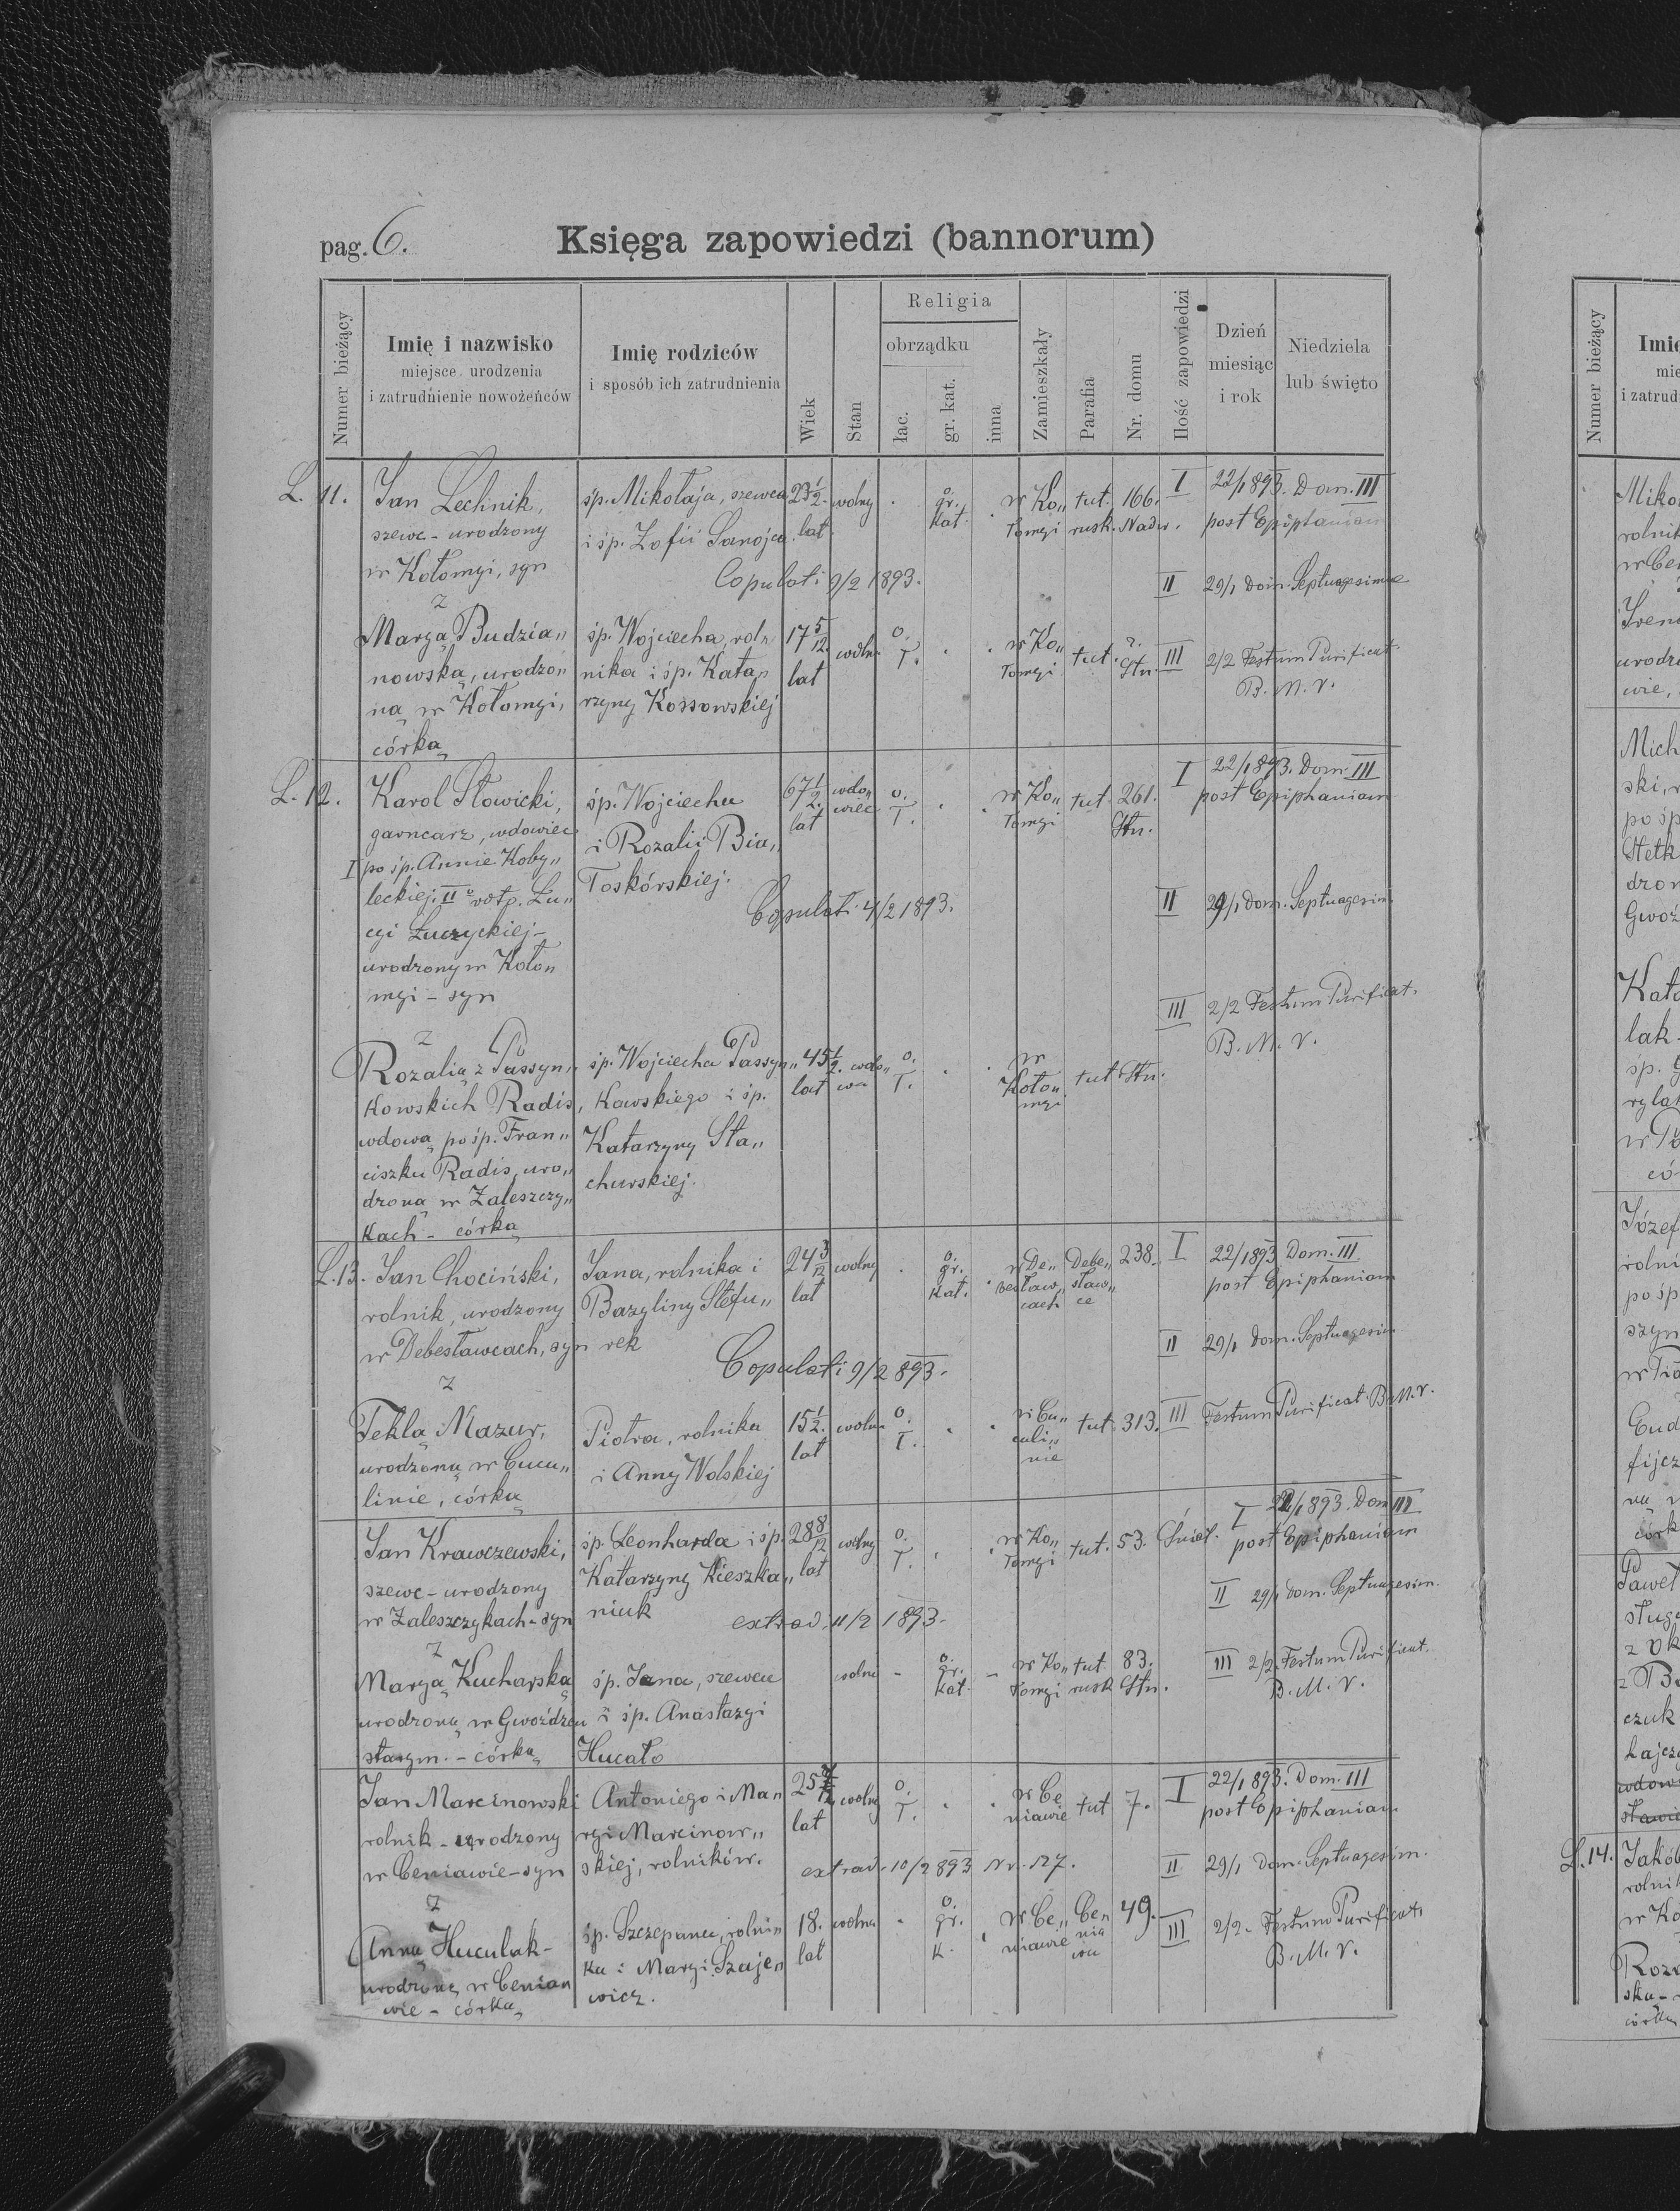 pag. 6.
Księga zapowiedzi (bannorum)
Numer bieżący
Imię i nazwisko
miejsce urodzenia
i zatrudnienie nowożeńców
Imię rodziców
i sposób ich zatrudnienia
Wiek
Stan
Religia
obrządku
łac.
gr. kat.
inna
Zamieszkały
Parafia
Nr. domu
Ilość zapowiedzi
Dzień
miesiąc
i rok
Niedziela
lub święto
L. 11.
Jan Lechnik,
szewc - urodzony
w Kołomyi, syn
z
śp. Mikołaja, szewca
i śp. Zofii Sanojca
23 1/2 lat
wolny
gr. kat.
w Ko„
łomyi
tut. rusk.
166. Nadw.
I 22/1 893. Dom. III
post Epiphaniam
Copulati 9/2 1893.
II 29/1 Dom. Septuagesimae
Maryą Budzia„
nowską, urodzo„
ną w Kołomyi,
córką
śp. Wojciecha, rol„
nika i śp. Kata„
rzyny Kossowskiej
17 5/12 lat
wolna
o. ł.
w Ko„
łomyi
tut.
?. Stn.
III 2/2 Festum Purificat.
B. M. V.
L. 12.
Karol Słowicki,
garncarz, wdowiec
I po śp. Annie Koby„
leckiej. II° voto p. Łu„
cyi Łuczyckiej -
urodzony w Koło„
myi - syn
z
śp. Wojciecha
i Rozalii Bia„
łoskórskiej.
67 1/2 lat
wdo„
wiec
o. ł.
w Ko„
łomyi
tut.
261. Stn.
I 22/1 893. Dom. III
post Epiphaniam
Copulati 4/2 1893.
II 29/1 Dom. Septuagesim.
III 2/2 Festum Purificat.
B. M. V.
Rozalią z Passyn„
kowskich Radis,
wdową po śp. Fran„
ciszku Radis, uro„
dzoną w Zaleszczy„
kach - córką
śp. Wojciecha Passyn„
kowskiego i śp.
Katarzyny Sta„
churskiej.
45 1/2 lat
wdo„
wa
o. ł.
w
Koło„
myi
tut. Stn.
L. 13.
Jan Chociński,
rolnik, urodzony
w Debesławcach, syn
z
Jana, rolnika i
Bazyliny Stefu„
rek
24 3/12 lat
wolny
o. gr. kat.
w De„
besław„
cach
Debe„
sław„
ce
238.
I 22/1 893 Dom. III
post Epiphaniam
II 29/1 Dom. Septuagesim
Copulati 9/2 893.
Teklą Mazur,
urodzoną w Cucu„
linie, córką
Piotra, rolnika
i Anny Wolskiej
15 1/2. lat
wolna
o. ł.
w Cu„
culi„
nie
tut. 313.
III Festum Purificat B.M.V.
Jan Krawczewski,
szewc - urodzony
w Zaleszczykach - syn
z
śp. Leonharda i śp.
Katarzyny Kieszka„
niuk
28 8/12 lat
wolny
o. ł.
w Ko„
łomyi
tut. 53. Śniat.
I 22/1 893. Dom III
post Epiphaniam
II 29/1 Dom. Septuagesim.
extrad. 11/2 1893.
Maryą Kucharską
urodzoną w Gwoźdzcu
starym. - córką
śp. Jana, szewca
i śp. Anastazyi
Hucało
wolna
o. gr. kat.
w Ko„
łomyi
tut rusk
83. Stn.
III 2/2. Festum Purificat.
B. M. V.
Jan Marcinowski
rolnik - urodzony
w Ceniawie - syn
z
Antoniego i Ma„
ryi Marcinow„
skiej, rolników.
lat
wolny
o. ł.
w Ce„
niawie
tut 7.
I 22/1 893. Dom. III
post Epiphaniam
extrad. 10/2 893 Nr. 127.
II 29/1 Dom. Septuagesim.
Anną Huculak -
urodzoną w Cenia„
wie - córką
śp. Szczepana, rolni„
ka i Maryi Szaje„
wicz.
18. lat
wolna
o. gr. k.
w Ce„
niawie
Ce„
nia„
wa
49.
III 2/2 - Festum Purificat.
B. M. V.
Numer bieżący
L. 14.